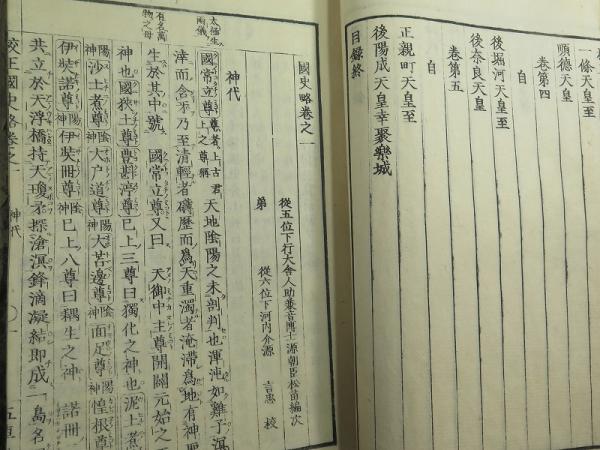 一條天皇至
順德天皇
卷第四
自
後堀河天皇至
後奈良天皇
卷第五
自
正親町天皇至
後陽成天皇幸聚樂城
目錄終
國史略卷之一
從五位下行大舍人助兼音博士源朝臣松苗編次
弟 從六位下河内介源 吉惠 校
神代
太極生
兩儀
有名萬
物之母
國常立尊 尊者上古君上之尊稱 天地陰陽之未剖判也渾沌如雞子溟
涬而含牙乃至清輕者礴歷而爲天重濁者淹滯爲地有神
生於其中號 國常立尊又曰 天御中主尊開闢元始之
神也國狹土尊豊斟渟尊已上三尊曰獨化之神也泥土煮
陽神沙土煮尊陰神大戶道尊陽神大苫邊尊陰神面足尊陽神惶根尊
伊弉諾尊陽神伊弉冊尊陰神已上八尊曰耦生之神 諾冊
共立於天浮橋持天瓊矛探滄溟鋒滴凝結即成一島名
校正國史略卷之一 神代 一 五車